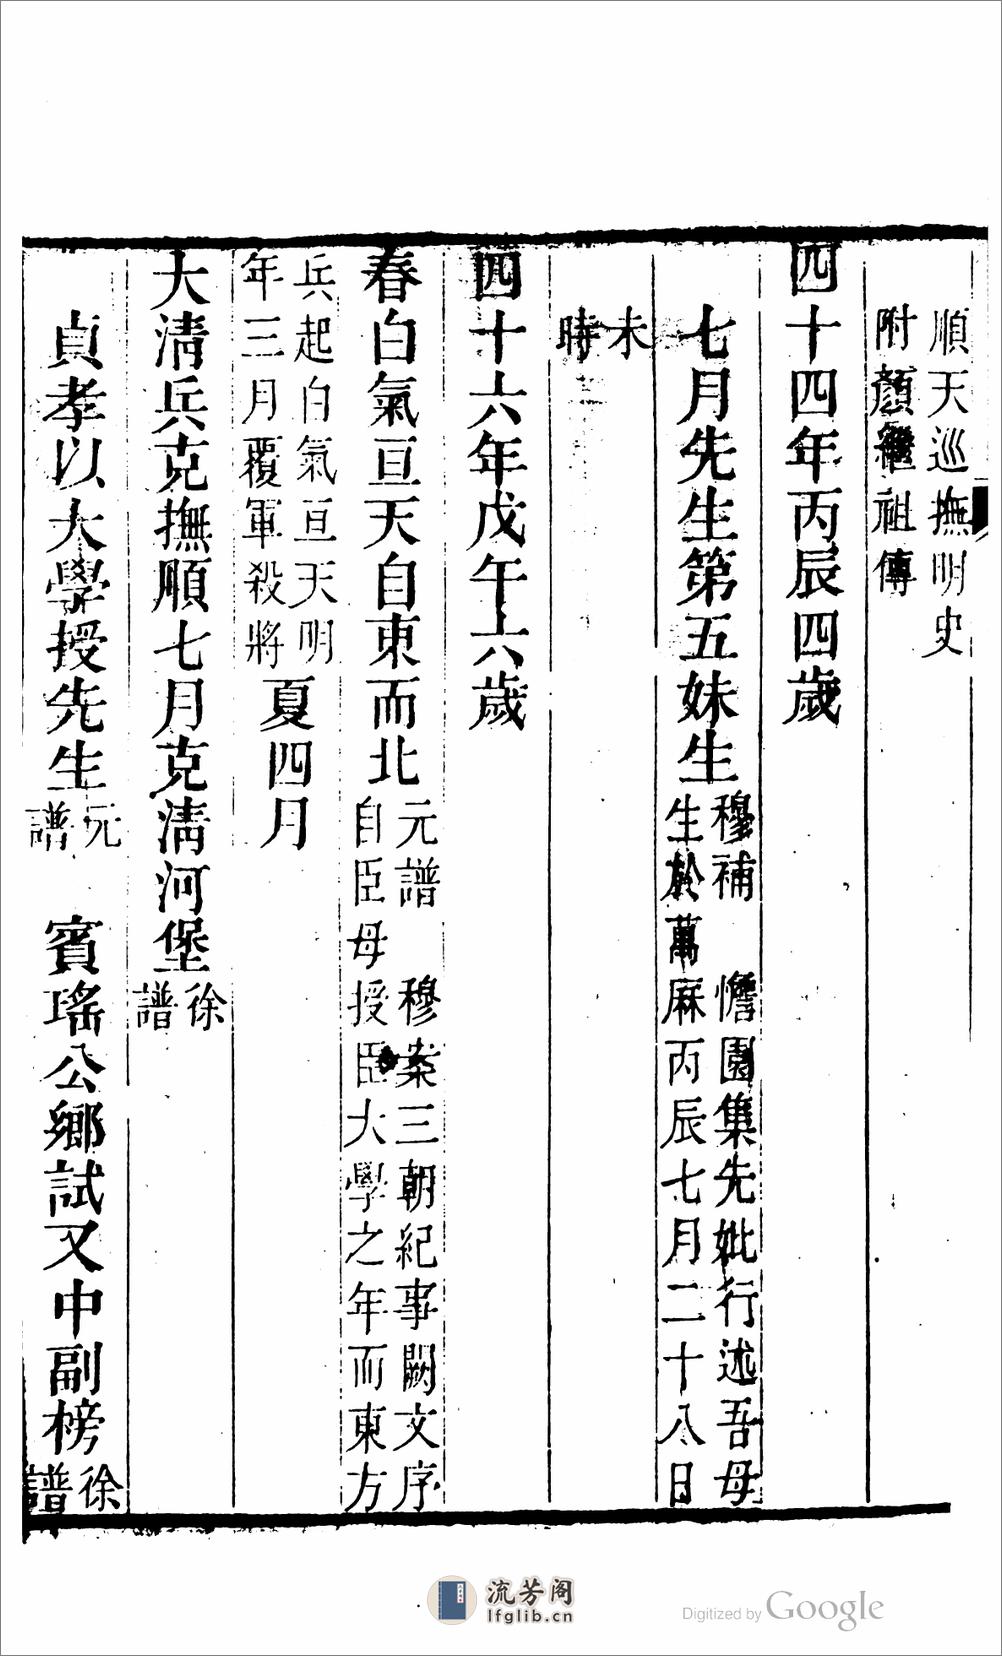 順天巡撫明史
附顏繼祖傳
四十四年丙辰四歲
七月先生第五妹生
穆補 憺園集先妣行述吾母
生於萬麻丙辰七月二十八日
未
時
四十六年戊午六歲
春白氣亘天自東而北
元譜 穆案三朝紀事闕文序
自臣母授臣大學之年而東方
兵起白氣亘天明
年三月覆軍殺將
夏四月
大清兵克撫順七月克清河堡
徐
譜
貞孝以大學授先生
元
譜
賓瑤公鄉試又中副榜
徐
譜
流芳阁
lfglib.cn
Digitized by Google